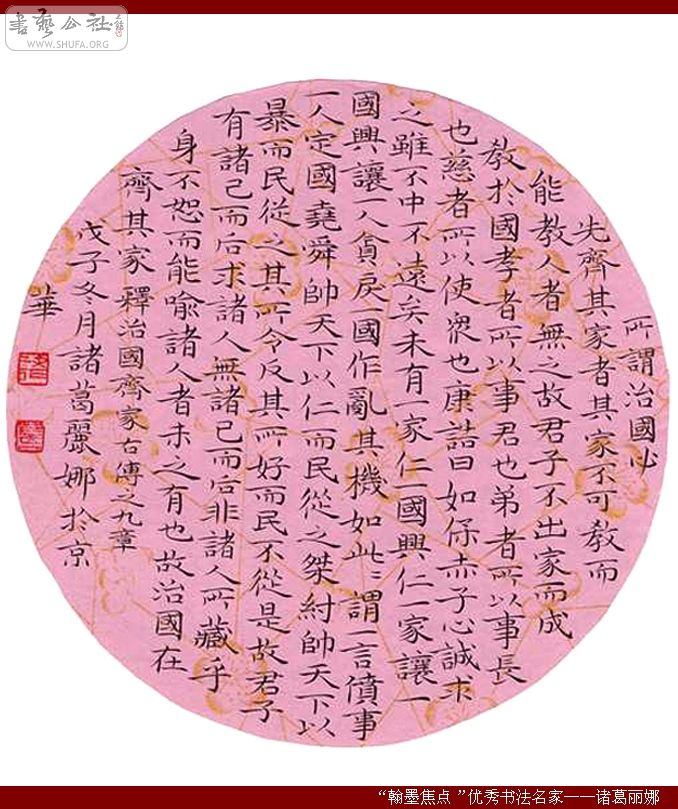 書藝公社
WWW.SHUFA.ORG
所謂治國必
先齊其家者其家不可教而
能教人者無之故君子不出家而成
教於國孝者所以事君也弟者所以事長
也慈者所以使眾也康誥曰如保赤子心誠求
之雖不中不遠矣未有一家仁一國興仁一家讓一
國興讓一人貪戾一國作亂其機如此:謂一言僨事
一人定國堯舜帥天下以仁而民從之桀紂帥天下以
暴而民從之其所令反其所好而民不從是故君子
有諸己而后求諸人無諸己而后非諸人所藏乎
身不恕而能喻諸人者未之有也故治國在
齊其家釋治國齊家右傳之九章
戊子冬月諸葛麗娜於京
華
“翰墨焦点 ”优秀书法名家——诸葛丽娜